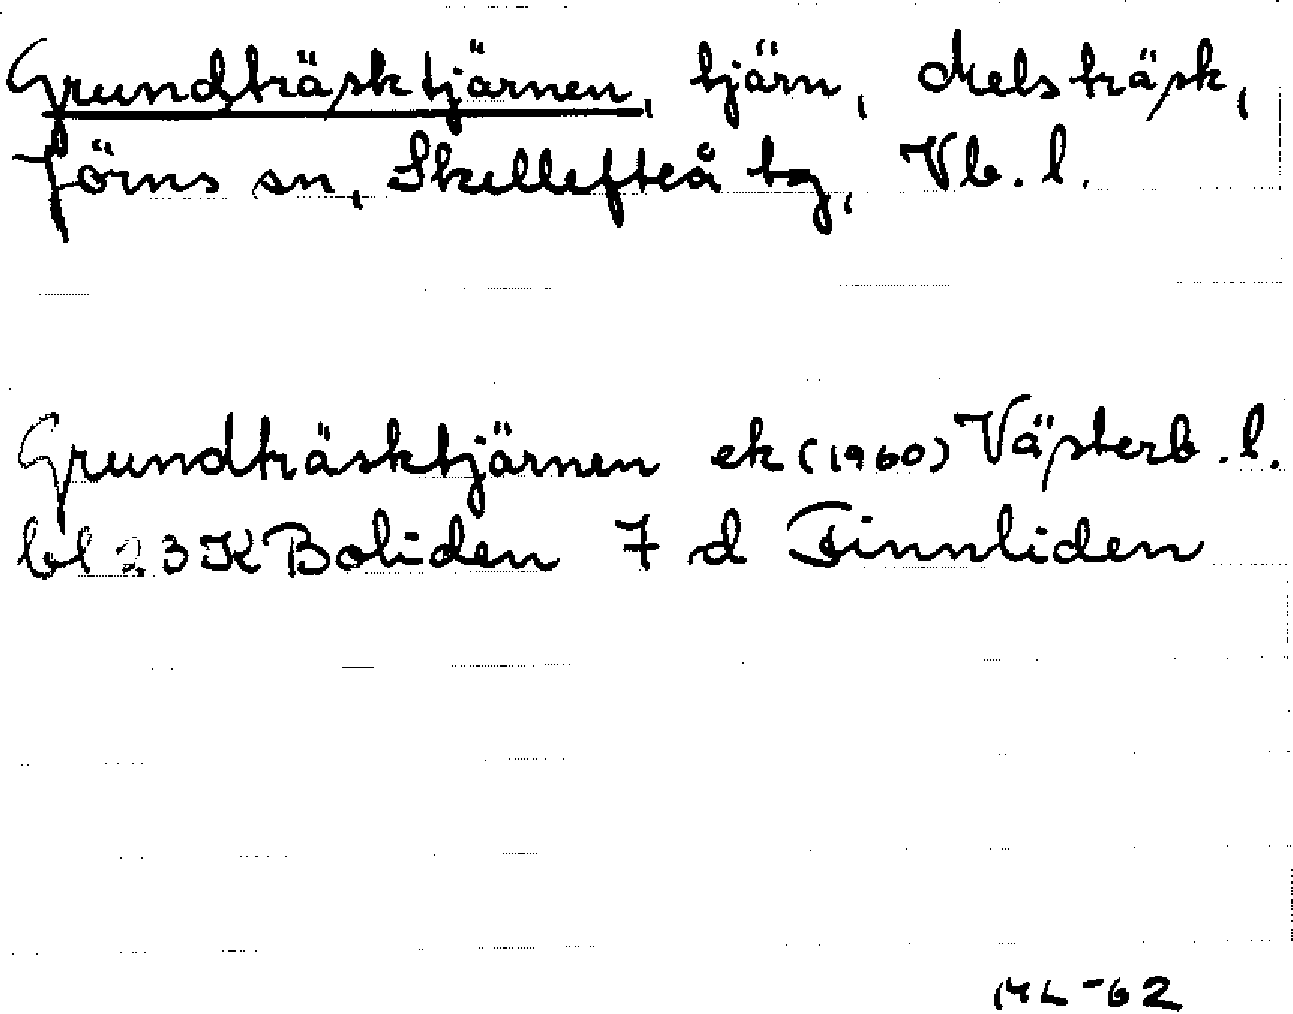 Grundträsktjärnen, tjärn, Melsträsk,
Jörns sn, Skellefteå tg, Vb. l.
Grundträsktjärnen ek (1960) Västerb. l.
bl 23K Boliden 7 d Finnliden
ML-62